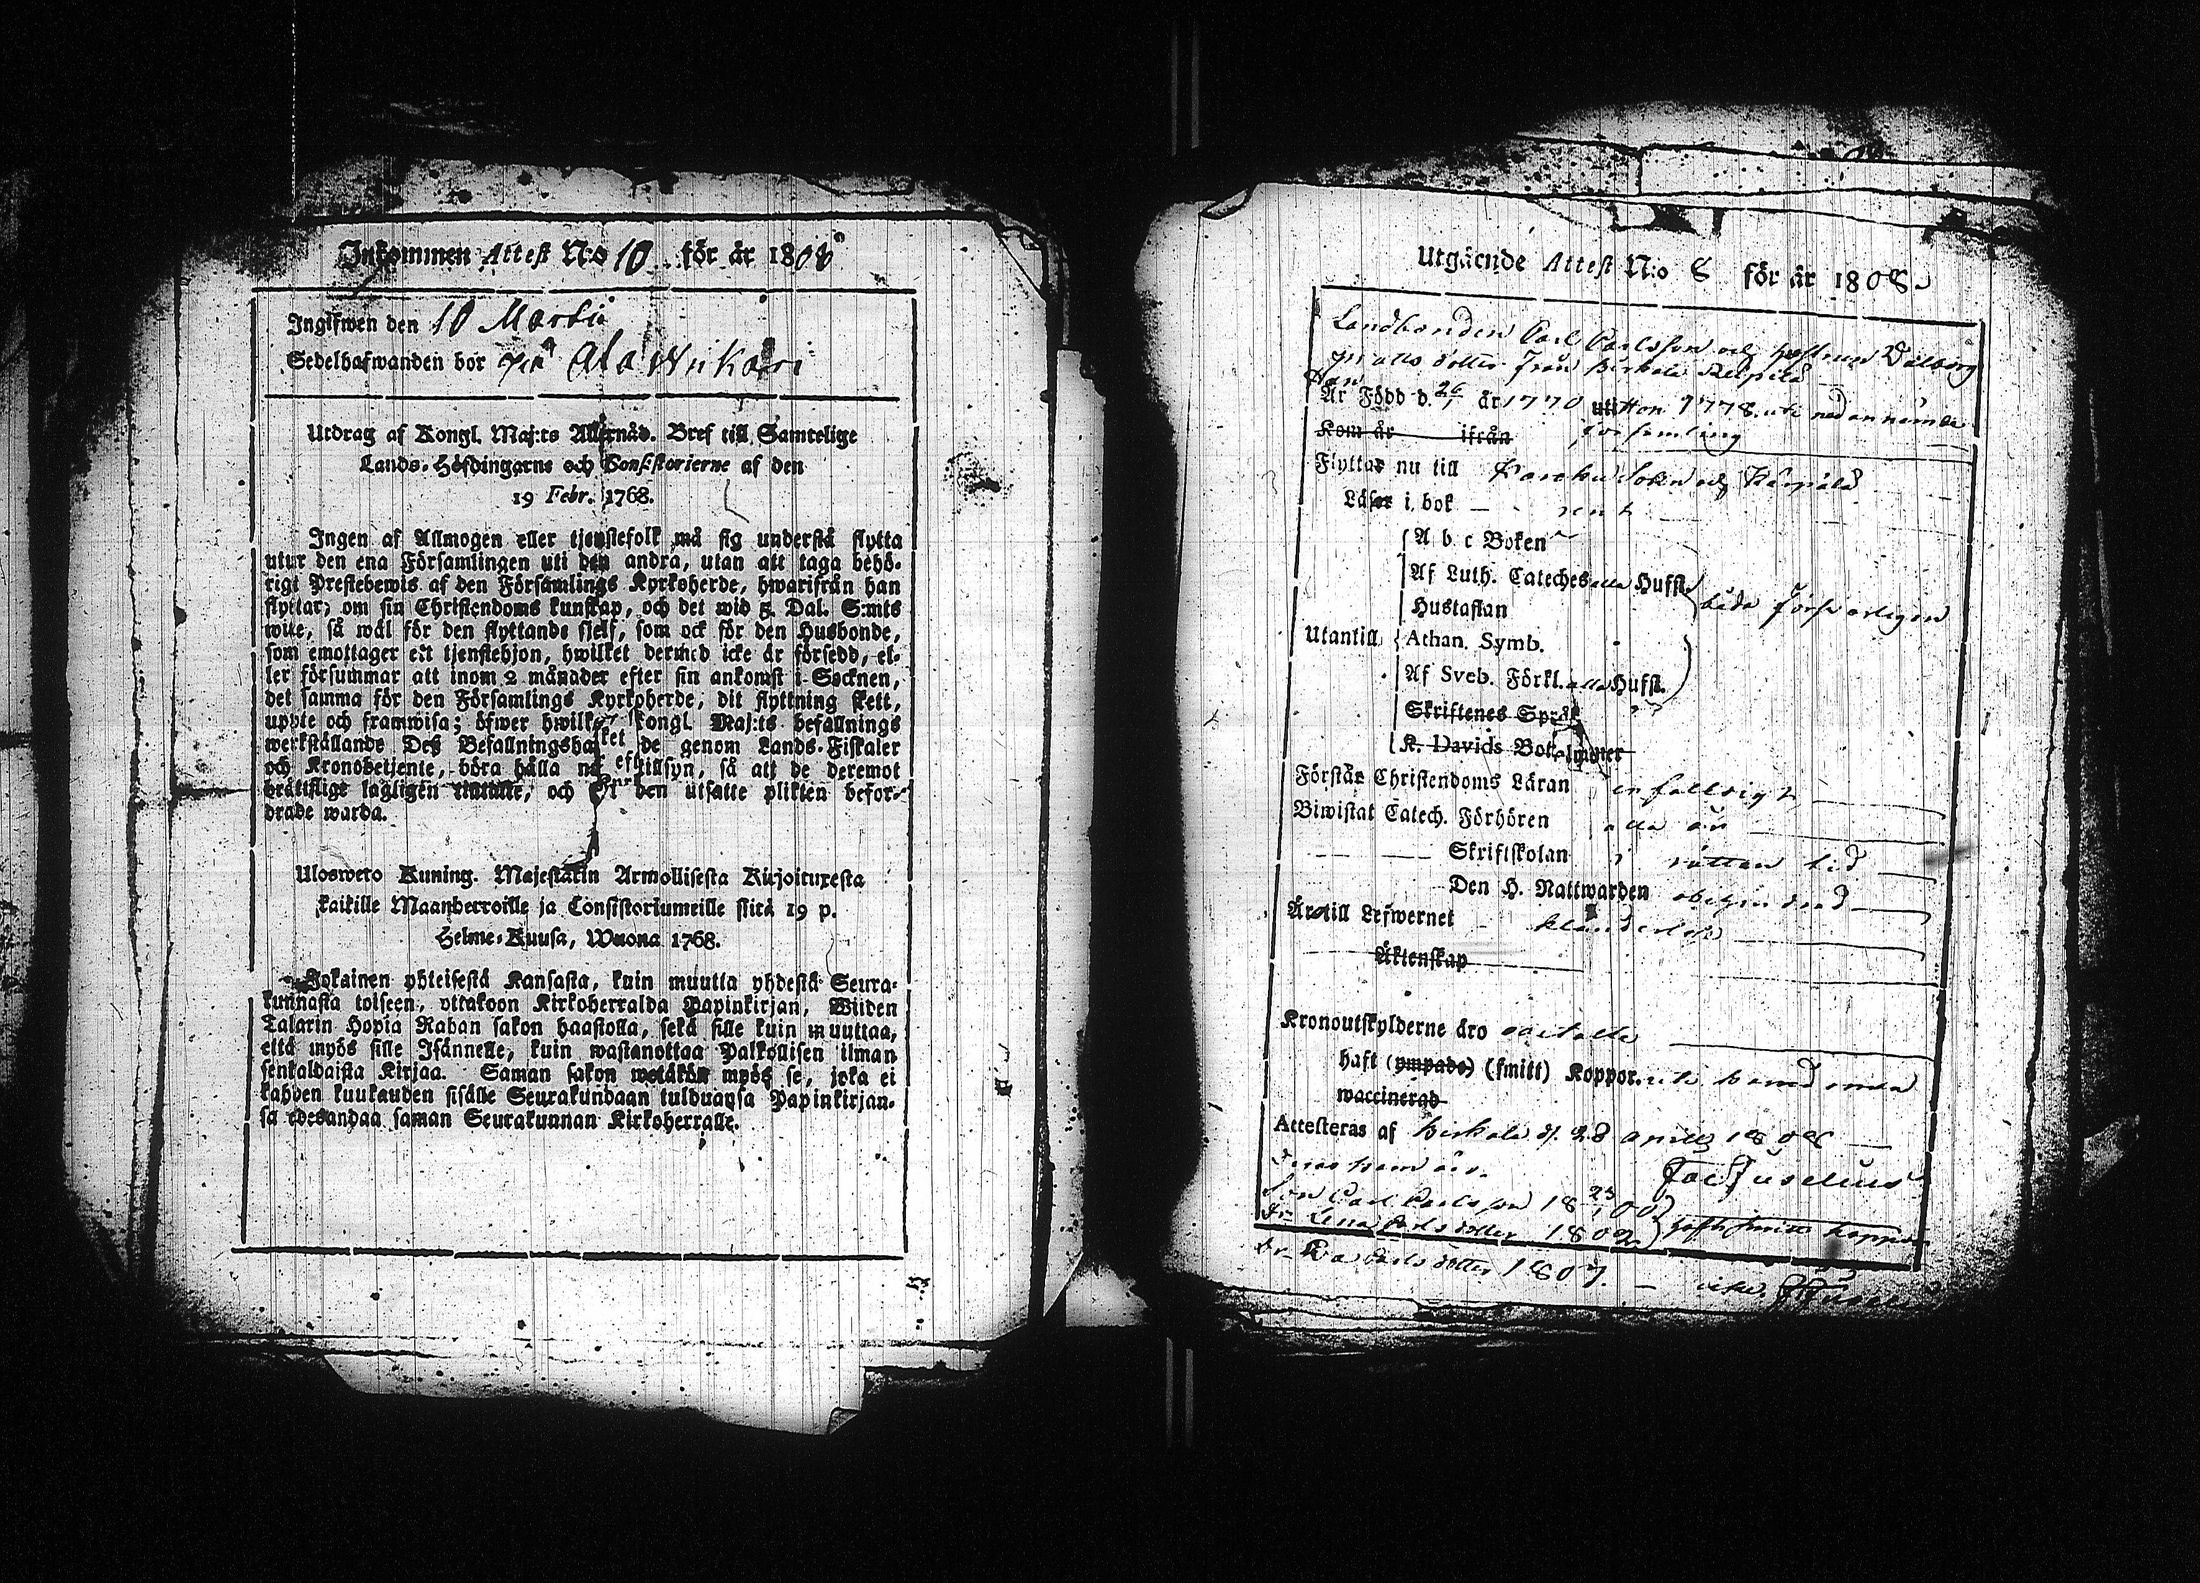 Inkommen Attest N:o 10 för år 1808
Ingifwen den 10 Martii
Sedelhafwanden bor på Ala Wiikari
Utdrag af Kongl. Maj:ts Allernåd. Bref till Samtelige
Lands-Höfdingarne och Consistorierne af den
19 Febr. 1768.
Ingen af Allmogen eller tjenstefolk må sig understå flytta
utur den ena Församlingen uti den andra, utan att taga behö-
rigt Prestebewis af den Församlings Kyrkoherde, hwarifrån han
flyttar, om sin Christendoms kunskap, och det wid 5 Dal. S:mts
wite, så wäl för den flyttande sjelf, som ock för den Husbonde,
som emottager ett tjenstehjon, hwilket dermed icke är försedd, el-
ler försummar att inom 2 månader efter sin ankomst i Socknen,
det samma för den Församlings Kyrkoherde, dit flyttning skett,
uppte och framwisa; öfwer hwilket Kongl. Maj:ts befallnings
werkställande Deß Befallningshafwande genom Lands-Fiskaler
och Kronobetjente, böra hålla noga eftertillsyn, så att de deremot
brättsligt lagligen, och den utsatte plikten befor-
drade warda.
Ulosweto Kuning. Majestätin Armollisesta Kirjoituxesta
kaikille Maanherroille ja Consistoriumeille siitä 19 p.
Helme-Kuusa, Wuona 1768.
Jokainen yhteisestä Kansasta, kuin muutta yhdestä Seura-
kunnasta toiseen, ottakoon Kirkoherralda Papinkirjan, Wiiden
Talarin Hopia Rahan sakon haastolla, sekä sille kuin muuttaa,
että myös sille Isännelle, kuin wastanottaa Palkollisen ilman
senkaldaista Kirjaa. Saman sakon wetäkön myös se, joka ei
kahden kuukauden sisälle Seurakundaan tulduansa Papinkirjan-
sa edesandaa saman Seurakunnan Kirkoherralle.
Utgående Attest N:o 8 för år 1808
Landbonden Carl Carlsson och hustrun Walborg
Matts dotter från Birkala
Han
Är Född d. 26/1 år 1770 uti Hon 1778 uti nedannämde
Kom år ifrån församling
Flyttar nu till Socken och
Läser i bok rent
A b c Boken
Af Luth. Cateches alla Hufst.
Hustaflan båda försvarligen
Utantill Athan. Symb.
Af Sveb. Förkl. alla Hufst.
Skriftenes Språk
K. Davids Botpsalmer
Förstår Christendoms Läran enfalldigt
Biwistat Catech. Förhören alla år
Skriftskolan i rättan tid
Den H. Nattwarden
Äro till Lefwernet klanderlöse
Äktenskap
Kronoutskylderne äro betalte
haft (ympade) (smitt) Koppor
waccinerad
Attesteras af Birkala d. 28 April 1808
Deras barn äro. Jac Juselius
Son Carl Carlsson 18 23/1 00
Dr Lena Carlsdotter 1802 haft smitt koppor
Dr Eva Carlsdotter 1807. — icke.